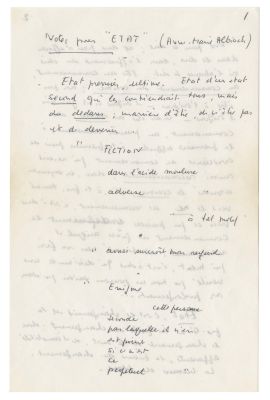 1
Notes pour "ETAT" (Anne-Marie Albiach)
. Etat premier, ultime. Etat d'un état
second qui les contiendrait tous mais
du dedans ; manière d'être, de n'être pas
et de devenir
" FICTION
dans l'acide mouture
adverse
à tel motif
" ainsi surcroît mon regard
" Enigme
cette personne
seconde
par laquelle il n'en
est point
si ce n'est
le
perpétuel "